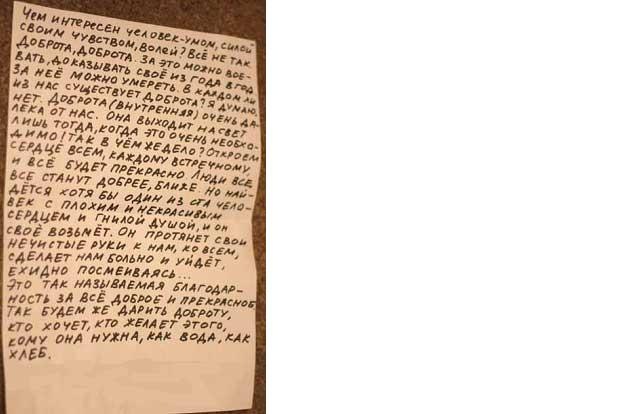 Чем интересен человек-умом, силой
своим чувством, волей? Всё не так
Доброта, доброта. За это можно вое-
вать, доказывать своё из года в год
За неё можно умереть. В каждом ли
из нас существует доброта? Я думаю,
нет. Доброта (внутренняя) очень да-
лека от нас. Она выходит на свет
лишь тогда, когда это очень необхо-
димо! Так в чём же дело? Откроем
сердце всем, каждому встречному,
и всё будет прекрасно. Люди все,
все станут добрее, ближе. Но най-
дётся хотя бы один из ста чело-
век с плохим и некрасивым
сердцем и гнилой душой, и он
своё возьмёт. Он протянет свои
нечистые руки к нам, ко всем,
сделает нам больно и уйдёт,
ехидно посмеиваясь...
Это так называемая благодар-
ность за всё доброе и прекрасное,
Так будем же дарить доброту,
кто хочет, кто желает этого,
кому она нужна, как вода, как
хлеб.